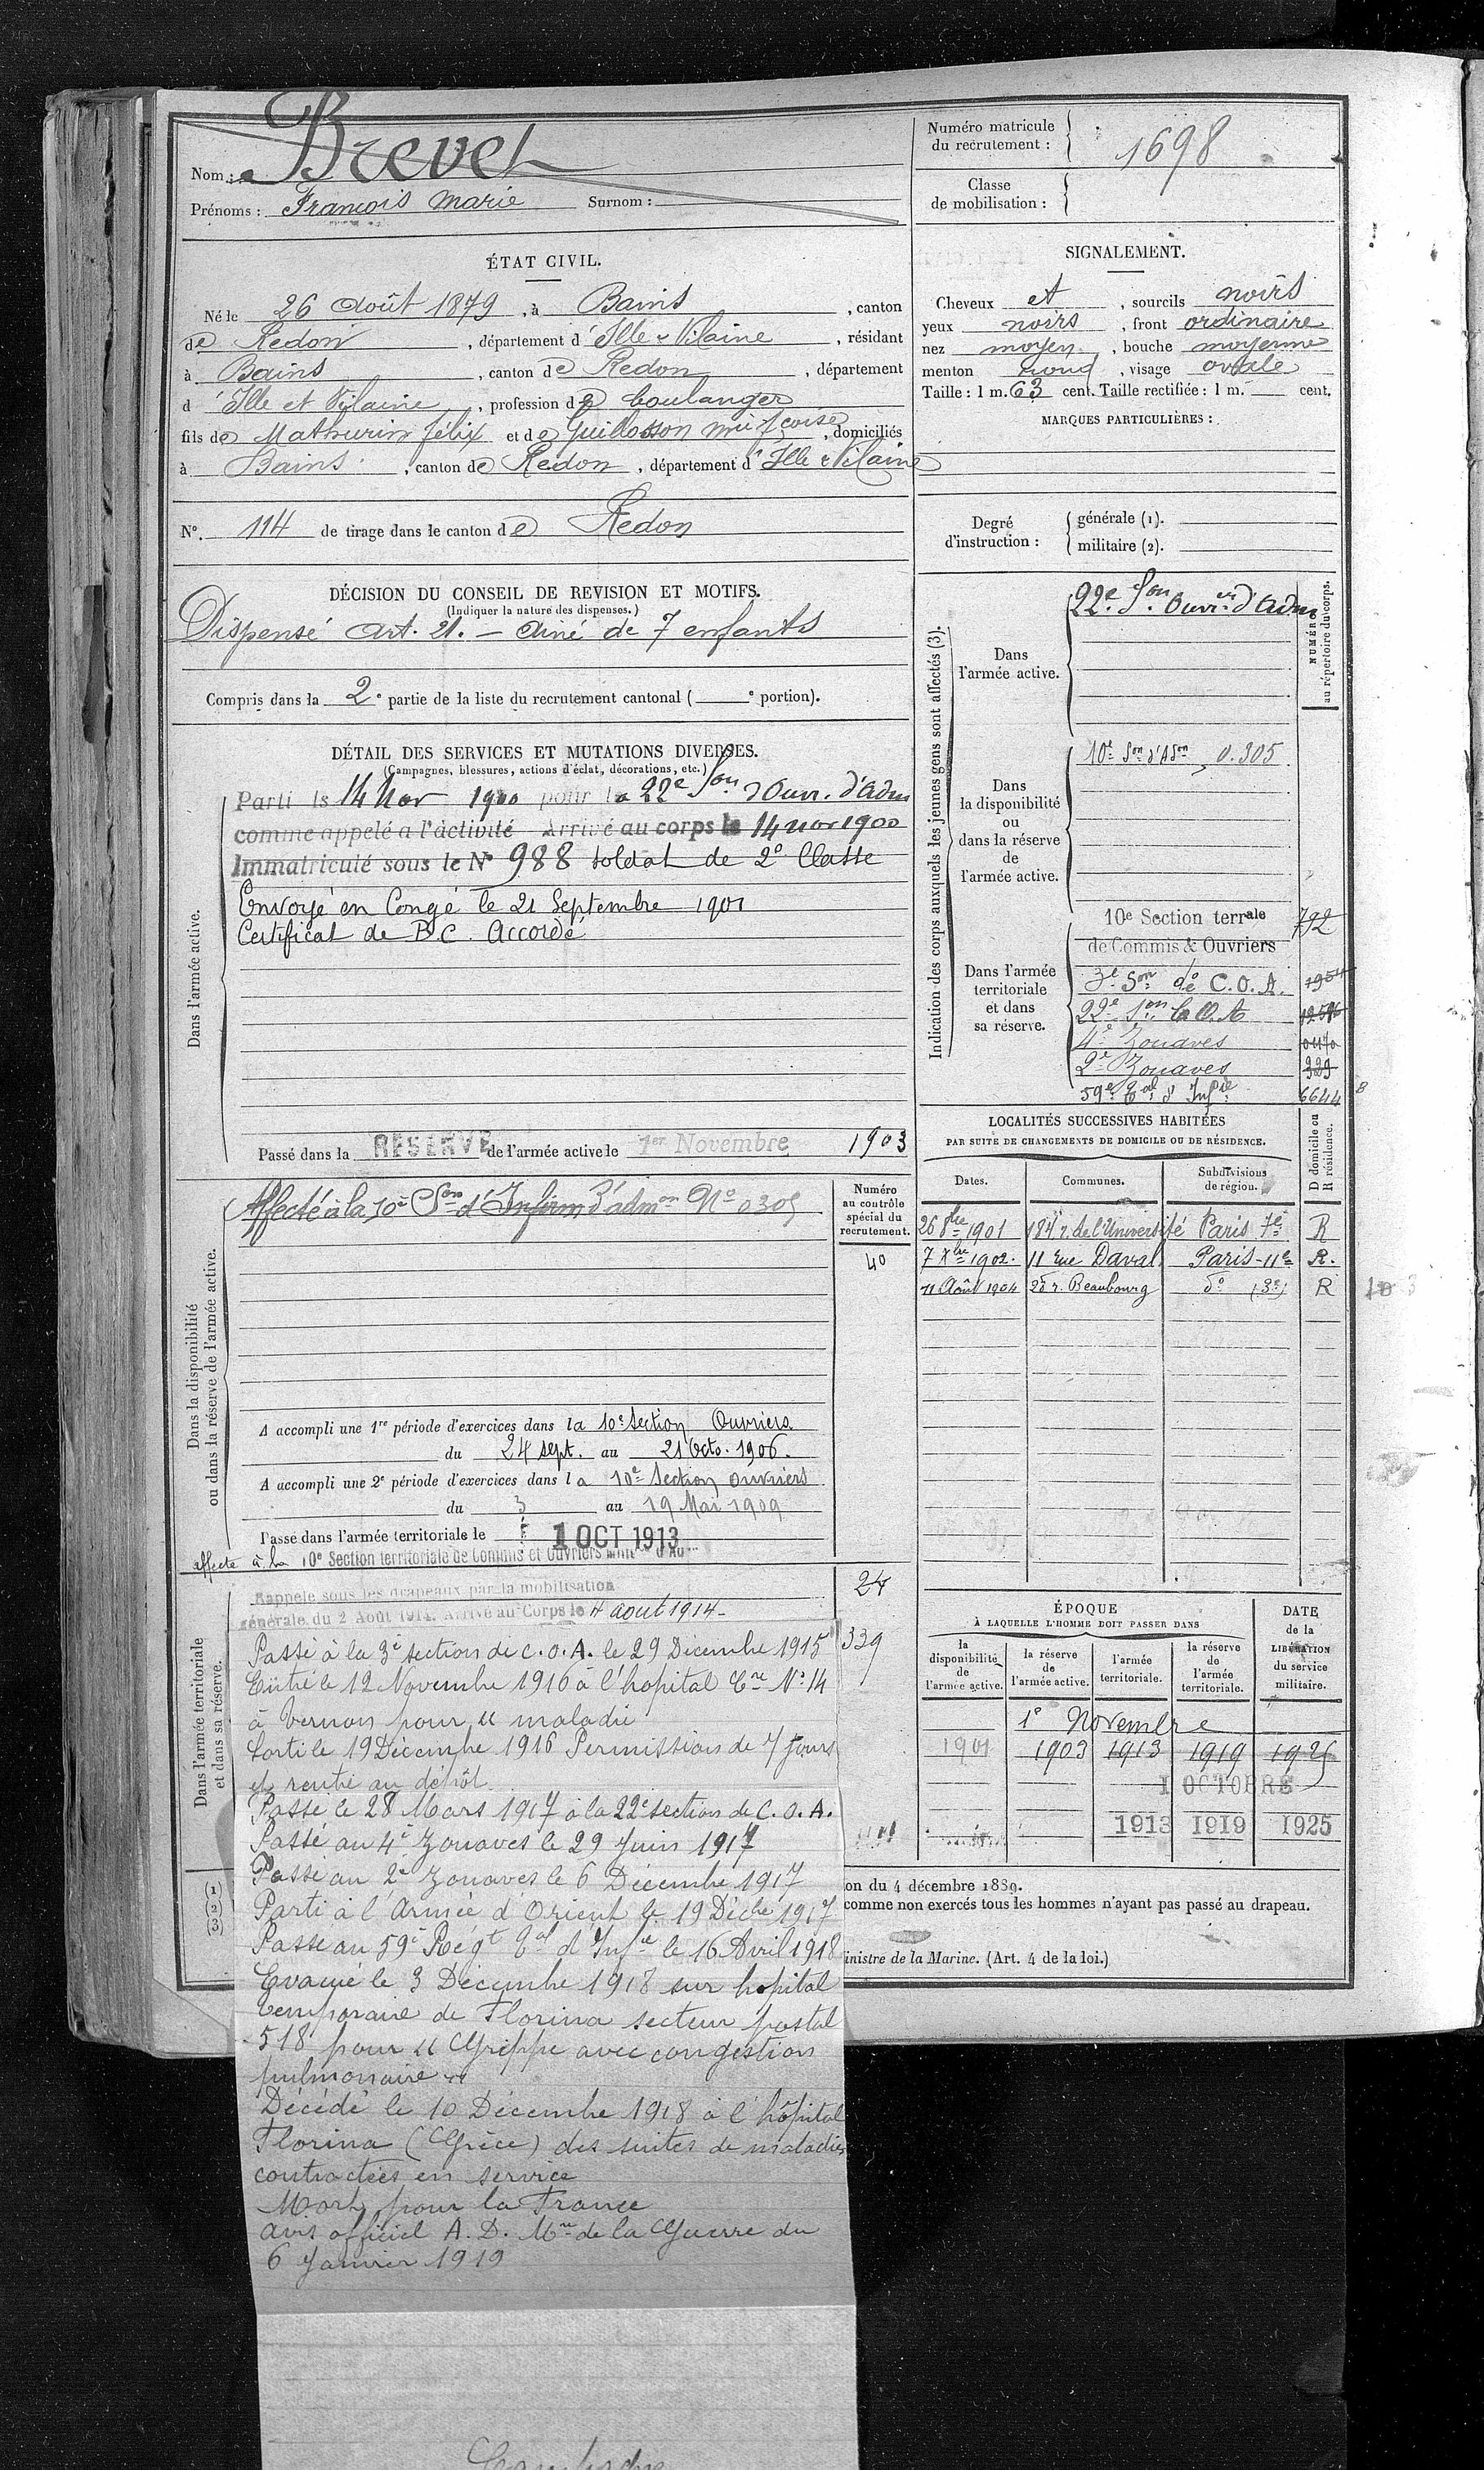 Nom : Brevet
Prénoms : François Marie Surnom :
Numéro matricule
du recrutement :
1698
Classe
de mobilisation :
ÉTAT CIVIL.
Né le 26 Août 1879, à Bains, canton
de Redon, département d'Ille & Vilaine, résidant
à Bains, canton de Redon, département
d'Ille et Vilaine, profession de boulanger
fils de Mathurin Félix et de Guillosson Mie Fçoise, domiciliés
à Bains, canton de Redon, département d'Ille & Vilaine
N°. 114 de tirage dans le canton de Redon
SIGNALEMENT.
Cheveux et, sourcils noirs
yeux noirs, front ordinaire
nez moyen, bouche moyenne
menton rond, visage ovale
Taille : 1 m. 63 cent. Taille rectifiée : 1 m. cent.
MARQUES PARTICULIÈRES :
Degré
d'instruction :
générale (1).
militaire (2).
DÉCISION DU CONSEIL DE REVISION ET MOTIFS.
(Indiquer la nature des dispenses.)
Dispensé Art. 21. — Ainé de 7 enfants
Compris dans la 2e partie de la liste du recrutement cantonal ( e portion).
DÉTAIL DES SERVICES ET MUTATIONS DIVERSES.
(Campagnes, blessures, actions d'éclat, décorations, etc.)
Dans l'armée active.
Parti le 14 Nov 1900 pour la 22e Son d'Ouv. d'Adm
comme appelé a l'activité Arrivé au corps le 14 nov 1900
Immatriculé sous le N° 988 soldat de 2e Classe
Envoyé en Congé le 21 Septembre 1901
Certificat de B.C. Accordé
Passé dans la RÉSERVE de l'armée active le 1er Novembre 1903
Indication des corps auxquels les jeunes gens sont affectés (3).
NUMÉRO
au répertoire du corps.
Dans
l'armée active.
22e Son Ouvrers d'Adm
Dans
la disponibilité
ou
dans la réserve
de
l'armée active.
10e Son d'Adon 0.305
Dans l'armée
territoriale
et dans
sa réserve.
10e Section terrale 792
de Commis & Ouvriers
3e Son de C.O.A.
22e Son C.O.A
4e Zouaves
2e Zouaves 329
59e Cal d'Infie 6644
LOCALITÉS SUCCESSIVES HABITÉES
PAR SUITE DE CHANGEMENTS DE DOMICILE OU DE RÉSIDENCE.
Dates. Communes. Subdivisions
de région.
D domicile ou
R résidence.
26 8bre 1901 184 r. de l'Université Paris 7e R
7 Xbre 1902. 11 rue Daval Paris-11e R.
11 Août 1904 25 r. Beaubourg do (3e) R
Dans la disponibilité
ou dans la réserve de l'armée active.
Numéro
au contrôle
spécial du
recrutement.
40
Affecté à la 10e Son d'Infirm d'admon No 0305
A accompli une 1re période d'exercices dans la 10e Section Ouvriers
du 24 sept. au 21 Octo. 1906.
A accompli une 2e période d'exercices dans la 10e Section ouvriers
du 3 au 19 Mai 1909
Passé dans l'armée territoriale le 1 OCT 1913
affecté à la 10e Section territoriale de Commis et Ouvriers
Dans l'armée territoriale
et dans sa réserve.
24
Rappelé sous les drapeaux par la mobilisation
générale du 2 Août 1914. Arrivé au Corps le 4 aout 1914-
Passé à la 3e section de C.O.A. le 29 Décembre 1915
339
Entré le 12 Novembre 1916 à l'hopital Cre N° 14
à Vernon pour " maladie
Sorti le 19 Décembre 1916 Permission de 7 jours
et rentré au dépôt
Passé le 28 Mars 1917 à la 22e section de C.O.A.
Passé au 4e Zouaves le 29 Juin 1917
Passé au 2e Zouaves le 6 Décembre 1917
Parti à l'Armée d'Orient le 19 Décbre 1917
Passé au 59e Régt Cal d'Infie le 16 Avril 1918
Evacué le 3 Décembre 1918 sur hopital
temporaire de Florina secteur postal
518 pour " Grippe avec congestion
pulmonaire "
Décédé le 10 Décembre 1918 à l'hôpital
Florina (Grèce) des suites de maladies
contractées en service
Mort pour la France
avis officiel A.D. Mre de la Guerre du
6 Janvier 1919
ÉPOQUE
À LAQUELLE L'HOMME DOIT PASSER DANS
DATE
de la
LIBÉRATION
du service
militaire.
la
disponibilité
de
l'armée active.
la réserve
de
l'armée active.
l'armée
territoriale.
la réserve
de
l'armée
territoriale.
1er Novembre
1901 1903 1913 1919 1925
1 OCTOBRE
1913 1919 1925
(1)
(2)
(3)
on du 4 décembre 1889.
comme non exercés tous les hommes n'ayant pas passé au drapeau.
inistre de la Marine. (Art. 4 de la loi.)